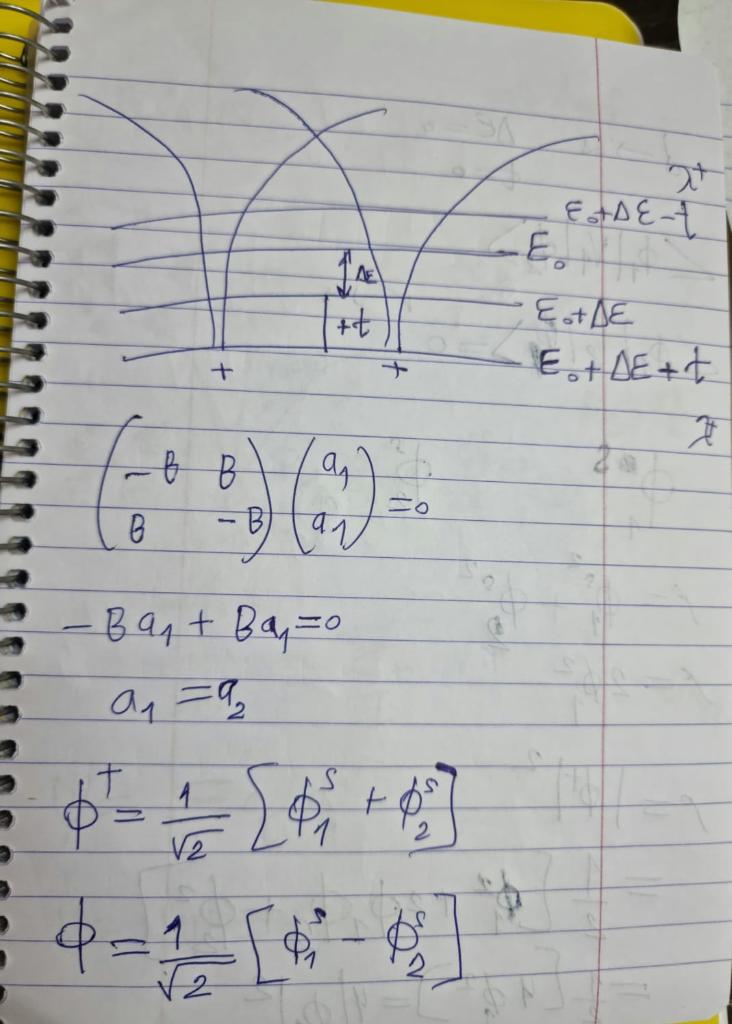 λ⁺
E₀+ΔE-t
E₀
ΔE
E₀+ΔE
+t
+ +
E₀+ΔE+t
(-B B) (a₁) =0
(B -B) (a₁)
-Ba₁+Ba₁=0
a₁=a₂
ϕ⁺=1/√2 [ϕ₁ˢ+ϕ₂ˢ]
ϕ=1/√2 [ϕ₁ˢ-ϕ₂ˢ]